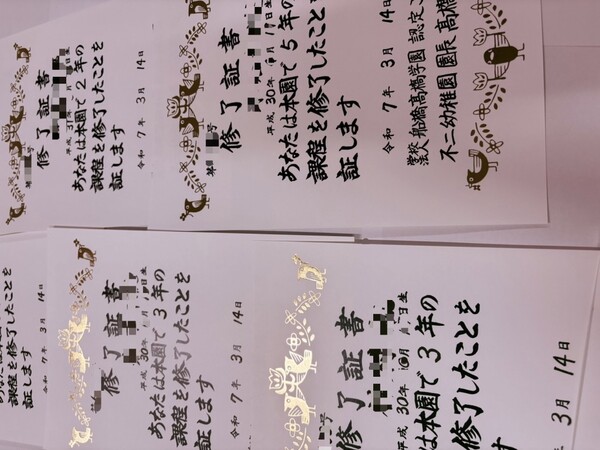 修了証書
あなたは本園で2年の
課程を修了したことを
証します
令和7年3月14日
修了証書
平成30年
あなたは本園で5年の
課程を修了したことを
証します
令和7年3月14日
学校法人 船橋高橋学園 認定こ
不二幼稚園 園長 高橋
課程を修了したことを
証します
令和7年3月14日
修了証書
平成30年
日生
あなたは本園で3年の
課程を修了したことを
証します
令和7年3月14日
修了証書
平成30年10月
日生
は本園で3年の
修了したことを
す
3月14日